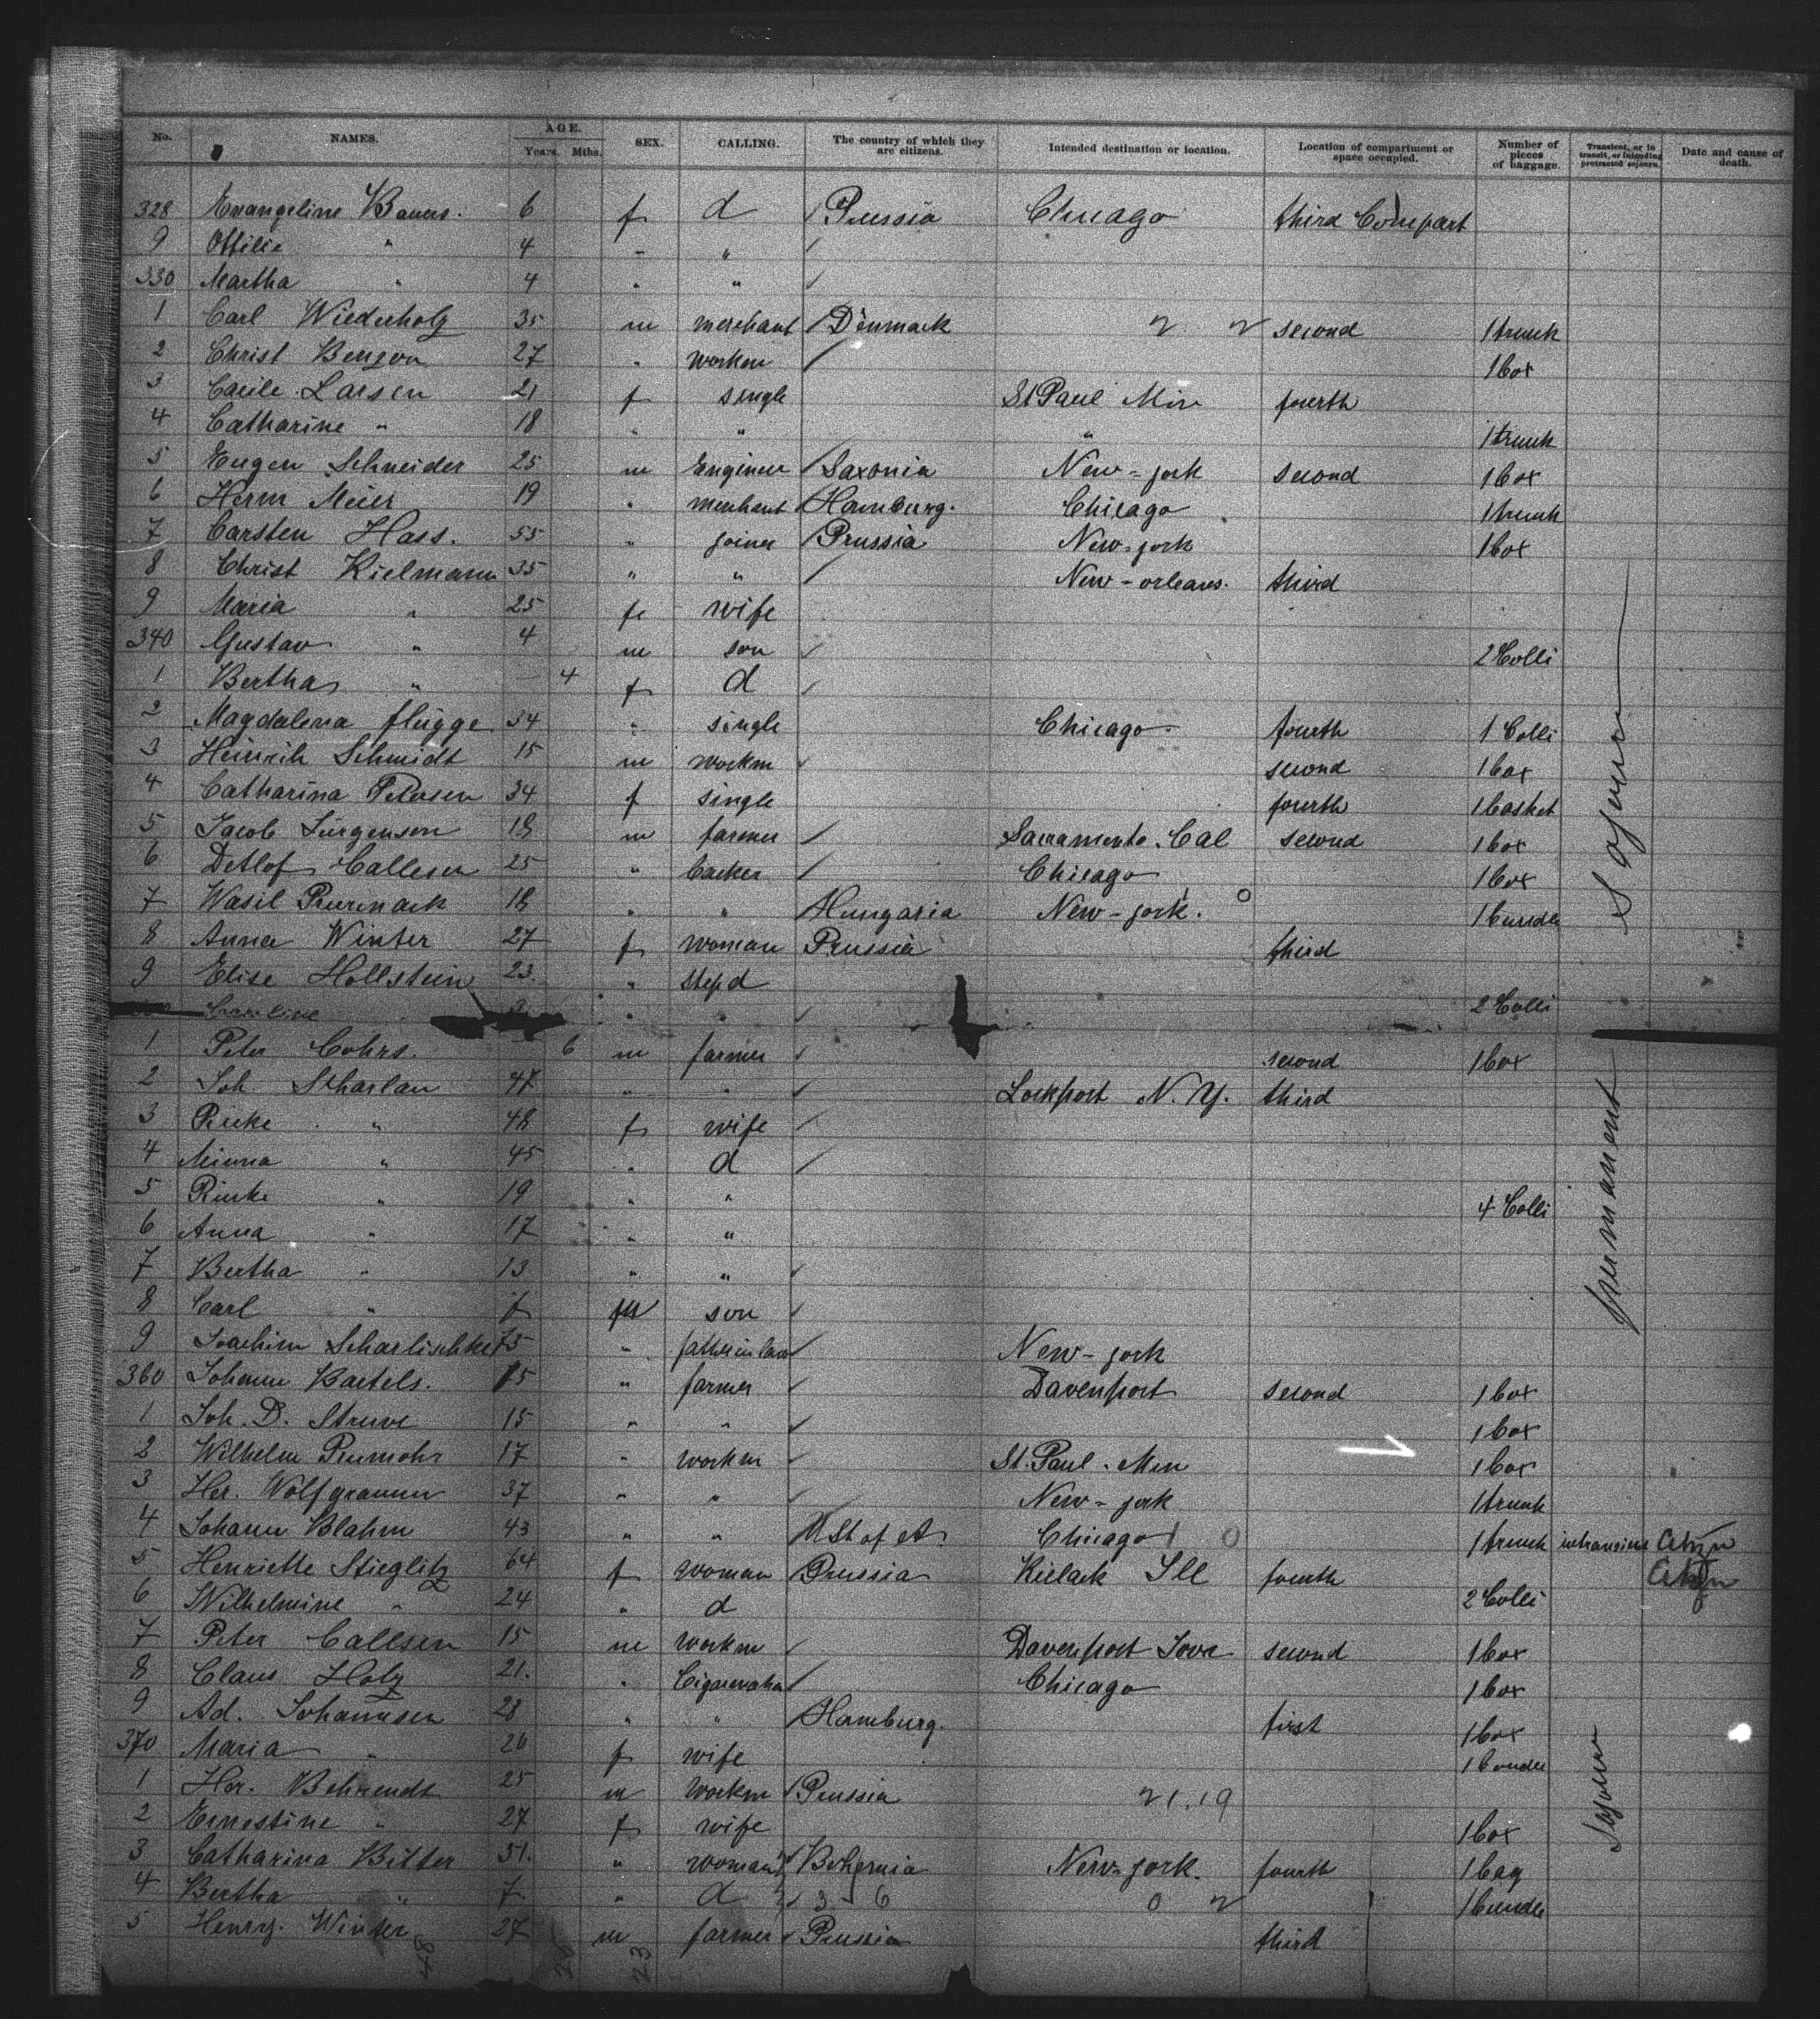 No. NAMES. AGE. Years. Mths. SEX. CALLING. The country of which they are citizens. Intended destination or location. Location of compartment or space occupied. Number of pieces of baggage. Transient, or in transit, or intending protracted sojourn. Date and cause of death.
328 Evangeline 6 f d Prussia Chicago third Compart
9 Ottilie " 4 " "
330 Martha " 4 " "
1 Carl Wiederholz 35 m merchant Denmark second 1 trunk
2 Christ Benzon 27 " workm 1 box
3 Cacile Larsen 21 f single St Paul Min fourth
4 Catharine " 18 " " " 1 trunk
5 Eugen Schneider 25 m Engineer Saxonia New-york second 1 box
6 Herm Meier 19 " merchant Hamburg. Chicago 1 trunk
7 Carsten Hass. 55 " joiner Prussia New-york 1 box
8 Christ Kielmann 35 " " New-orleans. third
9 Maria " 25 f wife
340 Gustav " 4 m son 2 Colli
1 Bertha " 4 f d
2 Magdalena flügge 34 " single Chicago fourth 1 Colli
3 Heinrich Schmidt 15 m workm second 1 box
4 Catharina Petersen 34 f single fourth 1 basket
5 Jacob Jürgensen 18 m farmer Sacramento. Cal second 1 box
6 Detlof Callesen 25 " backer Chicago 1 box
7 Wasil 18 " " Hungaria New-york. 1 bundle
8 Anna Winter 27 f woman Prussia third
9 Elise Hollstein 23. " stepd
Caroline " " 2 Colli
1 Peter Cohrs. 6 m farmer second 1 box
2 Joh. Scharlau 47 " " Lockport N.Y. third
3 Rieke " 48 f wife
4 Minna " 45 " d
5 Rieke " 19 " " 4 Colli
6 Anna " 17 " "
7 Bertha " 13 " "
8 Carl " m son
9 Joachim Scharlischke 75 " father in law New-york
360 Johann Bartels. 15 " farmer Davenport second 1 box
1 Joh. D. Struve 15 " " 1 box
2 Wilhelm Rumohr 17 " workm St. Paul. Min 1 box
3 Her. Wolfgramm 37 " " New-york 1 trunk
4 Johann Blahm 43 " " U St of A Chicago 1 trunk intransient
5 Henriette Stieglitz 64 f woman Prussia Ill fourth
6 Wilhelmine " 24 " d 2 Colli
7 Peter Callsen 15 m workm Davenport Iova second 1 box
8 Claus Holz 21. " Cigarmaker Chicago 1 box
9 Ad. Johannsen 28 " " Hamburg. first 1 box
370 Maria " 20 f wife 1 bundle
1 Her. Behrendt 25 m workm Prussia 21.19
2 Ernestine " 27 f wife 1 box
3 Catharina Bitter 31. " woman Bohemia New-york. fourth 1 bag
4 Bertha " 7 " d 3-6 1 bundle
5 Henry. Winter 27 m farmer Prussia third
48 23
permanent Sojourn
Sojourn